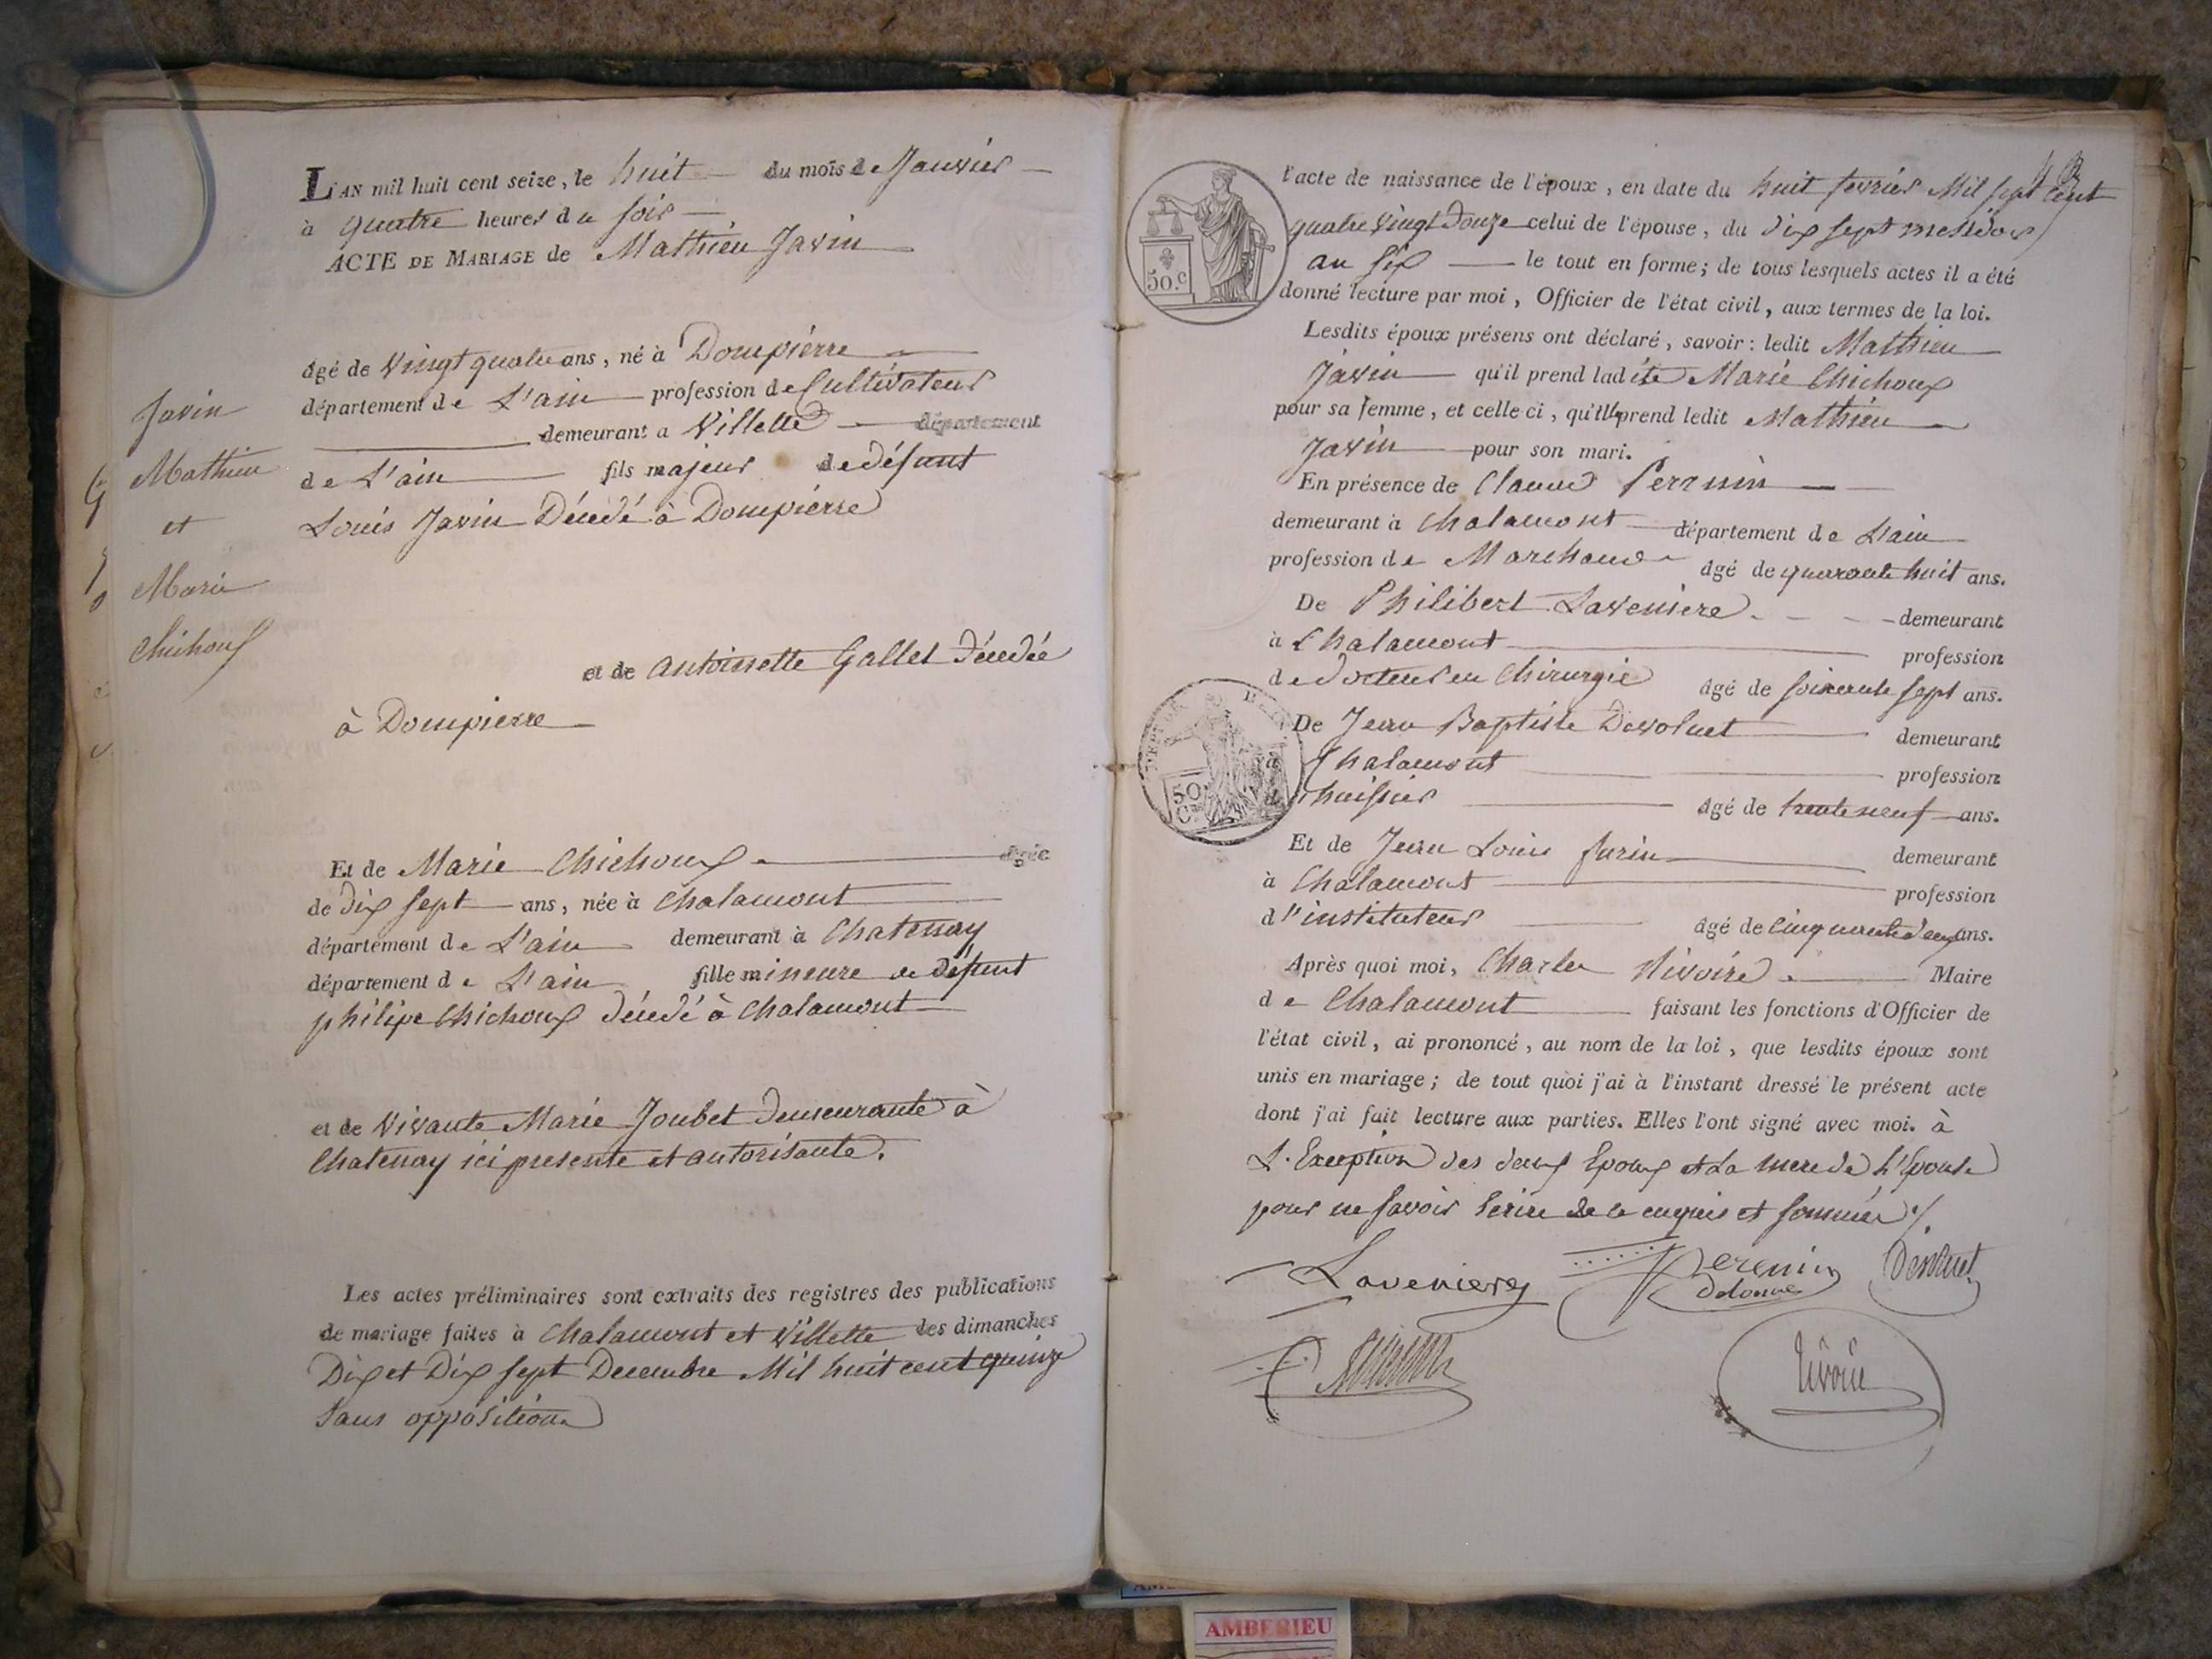 L'AN mil huit cent seize, le huit du mois de Janvier
à quatre heures du soir
ACTE DE MARIAGE de Mathieu Javin
âgé de vingt quatre ans, né à Dompierre
département de L'ain profession de Cultivateur
demeurant a Villette département
de L'ain fils majeur de défunt
Louis Javin Décédé à Dompierre
et de antoinette Gallet Décédée
à Dompierre
Javin
Mathieu
et
Marie
Chichoux
Et de Marie Chichoux âgée
de dix sept ans, née à Chalamont
département de L'ain demeurant à Chatenay
département de L'ain fille mineure de défunt
philipe Chichoux décédé à Chalamont
et de vivante Marie Joubet demeurante à
Chatenay ici presente et autorisante.
Les actes préliminaires sont extraits des registres des publications
de mariage faites à Chalamont et Villette les dimanches
Dix et Dix sept Decembre Mil huit cent quinze
Sans opposition
l'acte de naissance de l'époux, en date du huit fevrier Mil sept cent
quatre vingt Douze celui de l'épouse, du dix sept messidor
an six le tout en forme; de tous lesquels actes il a été
donné lecture par moi, Officier de l'état civil, aux termes de la loi.
50.c
Lesdits époux présens ont déclaré, savoir: ledit Mathieu
Javin qu'il prend ladite Marie Chichoux
pour sa femme, et celle-ci, qu'elle prend ledit Mathieu
Javin pour son mari.
En présence de Claude Perrnin
demeurant à Chalamont département de L'ain
profession de Marchand âgé de quarante huit ans.
De Philibert Laveniere demeurant
à Chalamont profession
de docteur en Chirurgie âgé de soixante sept ans.
De Jean Baptiste Devoluet demeurant
à Chalamont profession
d'huissier âgé de trente neuf ans.
50
Cs
Et de Jean Louis Jurin demeurant
à Chalamont profession
d'instituteur âgé de Cinquante deux ans.
Après quoi moi, Charles Nivoire Maire
de Chalamont faisant les fonctions d'Officier de
l'état civil, ai prononcé, au nom de la loi, que lesdits époux sont
unis en mariage; de tout quoi j'ai à l'instant dressé le présent acte
dont j'ai fait lecture aux parties. Elles l'ont signé avec moi. à
L'Exception des deux Epoux et La mere de L'Epouse
pour ne savoir Ecrire de ce enquis et sommés
Laveniere Perrnin Devoluet
Nivoire
AMBERIEU